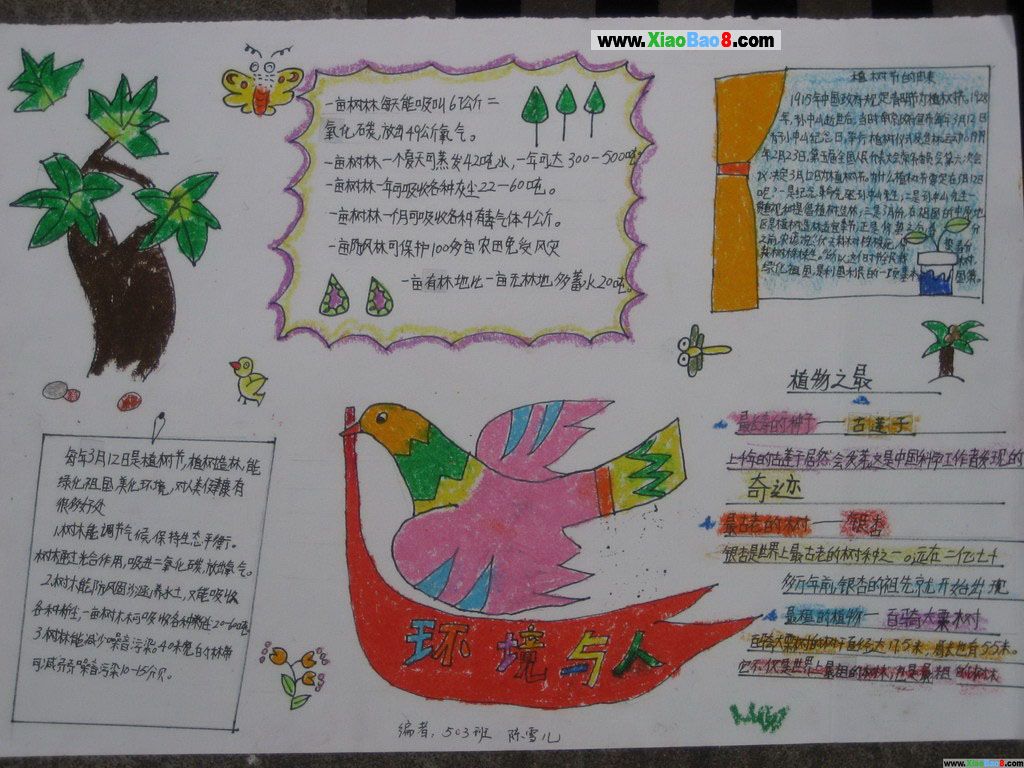 www.XiaoBao8.com
一亩树林每天能吸收67公斤二
氧化碳,放出49公斤氧气。
一亩树林一个夏天可蒸发420吨水,一年可达300—500吨
一亩树林一年可吸收各种灰尘22—60吨。
一亩树林一个月可吸收各种有毒气体4公斤。
一亩防风林可保护100多亩农田免受风灾
一亩有林地比一亩无林地多蓄水20吨。
植树节的由来
1915年中国政府规定清明节为植树节。1928
年,孙中山
年2月23日,第五届全国人民代表大会常务委员会第六次会
议决定3月12日为植树节。为什么植树节要定在3月12日
呢?一是纪念
绿化祖国,是利国利民的一项基本国策。
每年3月12日是植树节,植树造林,能
绿化祖国,美化环境,对人类健康有
很多好处
1.树木能调节气候,保持生态平衡。
树木通过光合作用,吸进二氧化碳,放出氧气。
2.树木能防风固沙,涵养水土,又能吸收
各种粉尘,一亩树木一年可吸收各种粉尘20—60吨
3.树林能减少噪音污染,40米宽的林带
可减弱噪音污染10—15分贝。
植物之最
最长寿的种子——古莲子
上千年的古莲子居然会发芽,这是中国科学工作者发现的
奇迹
最古老的树——银杏
银杏是世界上最古老的树种之一。远在二亿七千
多万年前,银杏的祖先就开始出现
最粗的植物——百骑大栗树
百骑大栗树的树干直径达17.5米,周长也有55米。
它不仅是世界上最粗的树木,也是最粗的植物
环境与人
编者:503班 陈雪儿
www.XiaoBao8.com